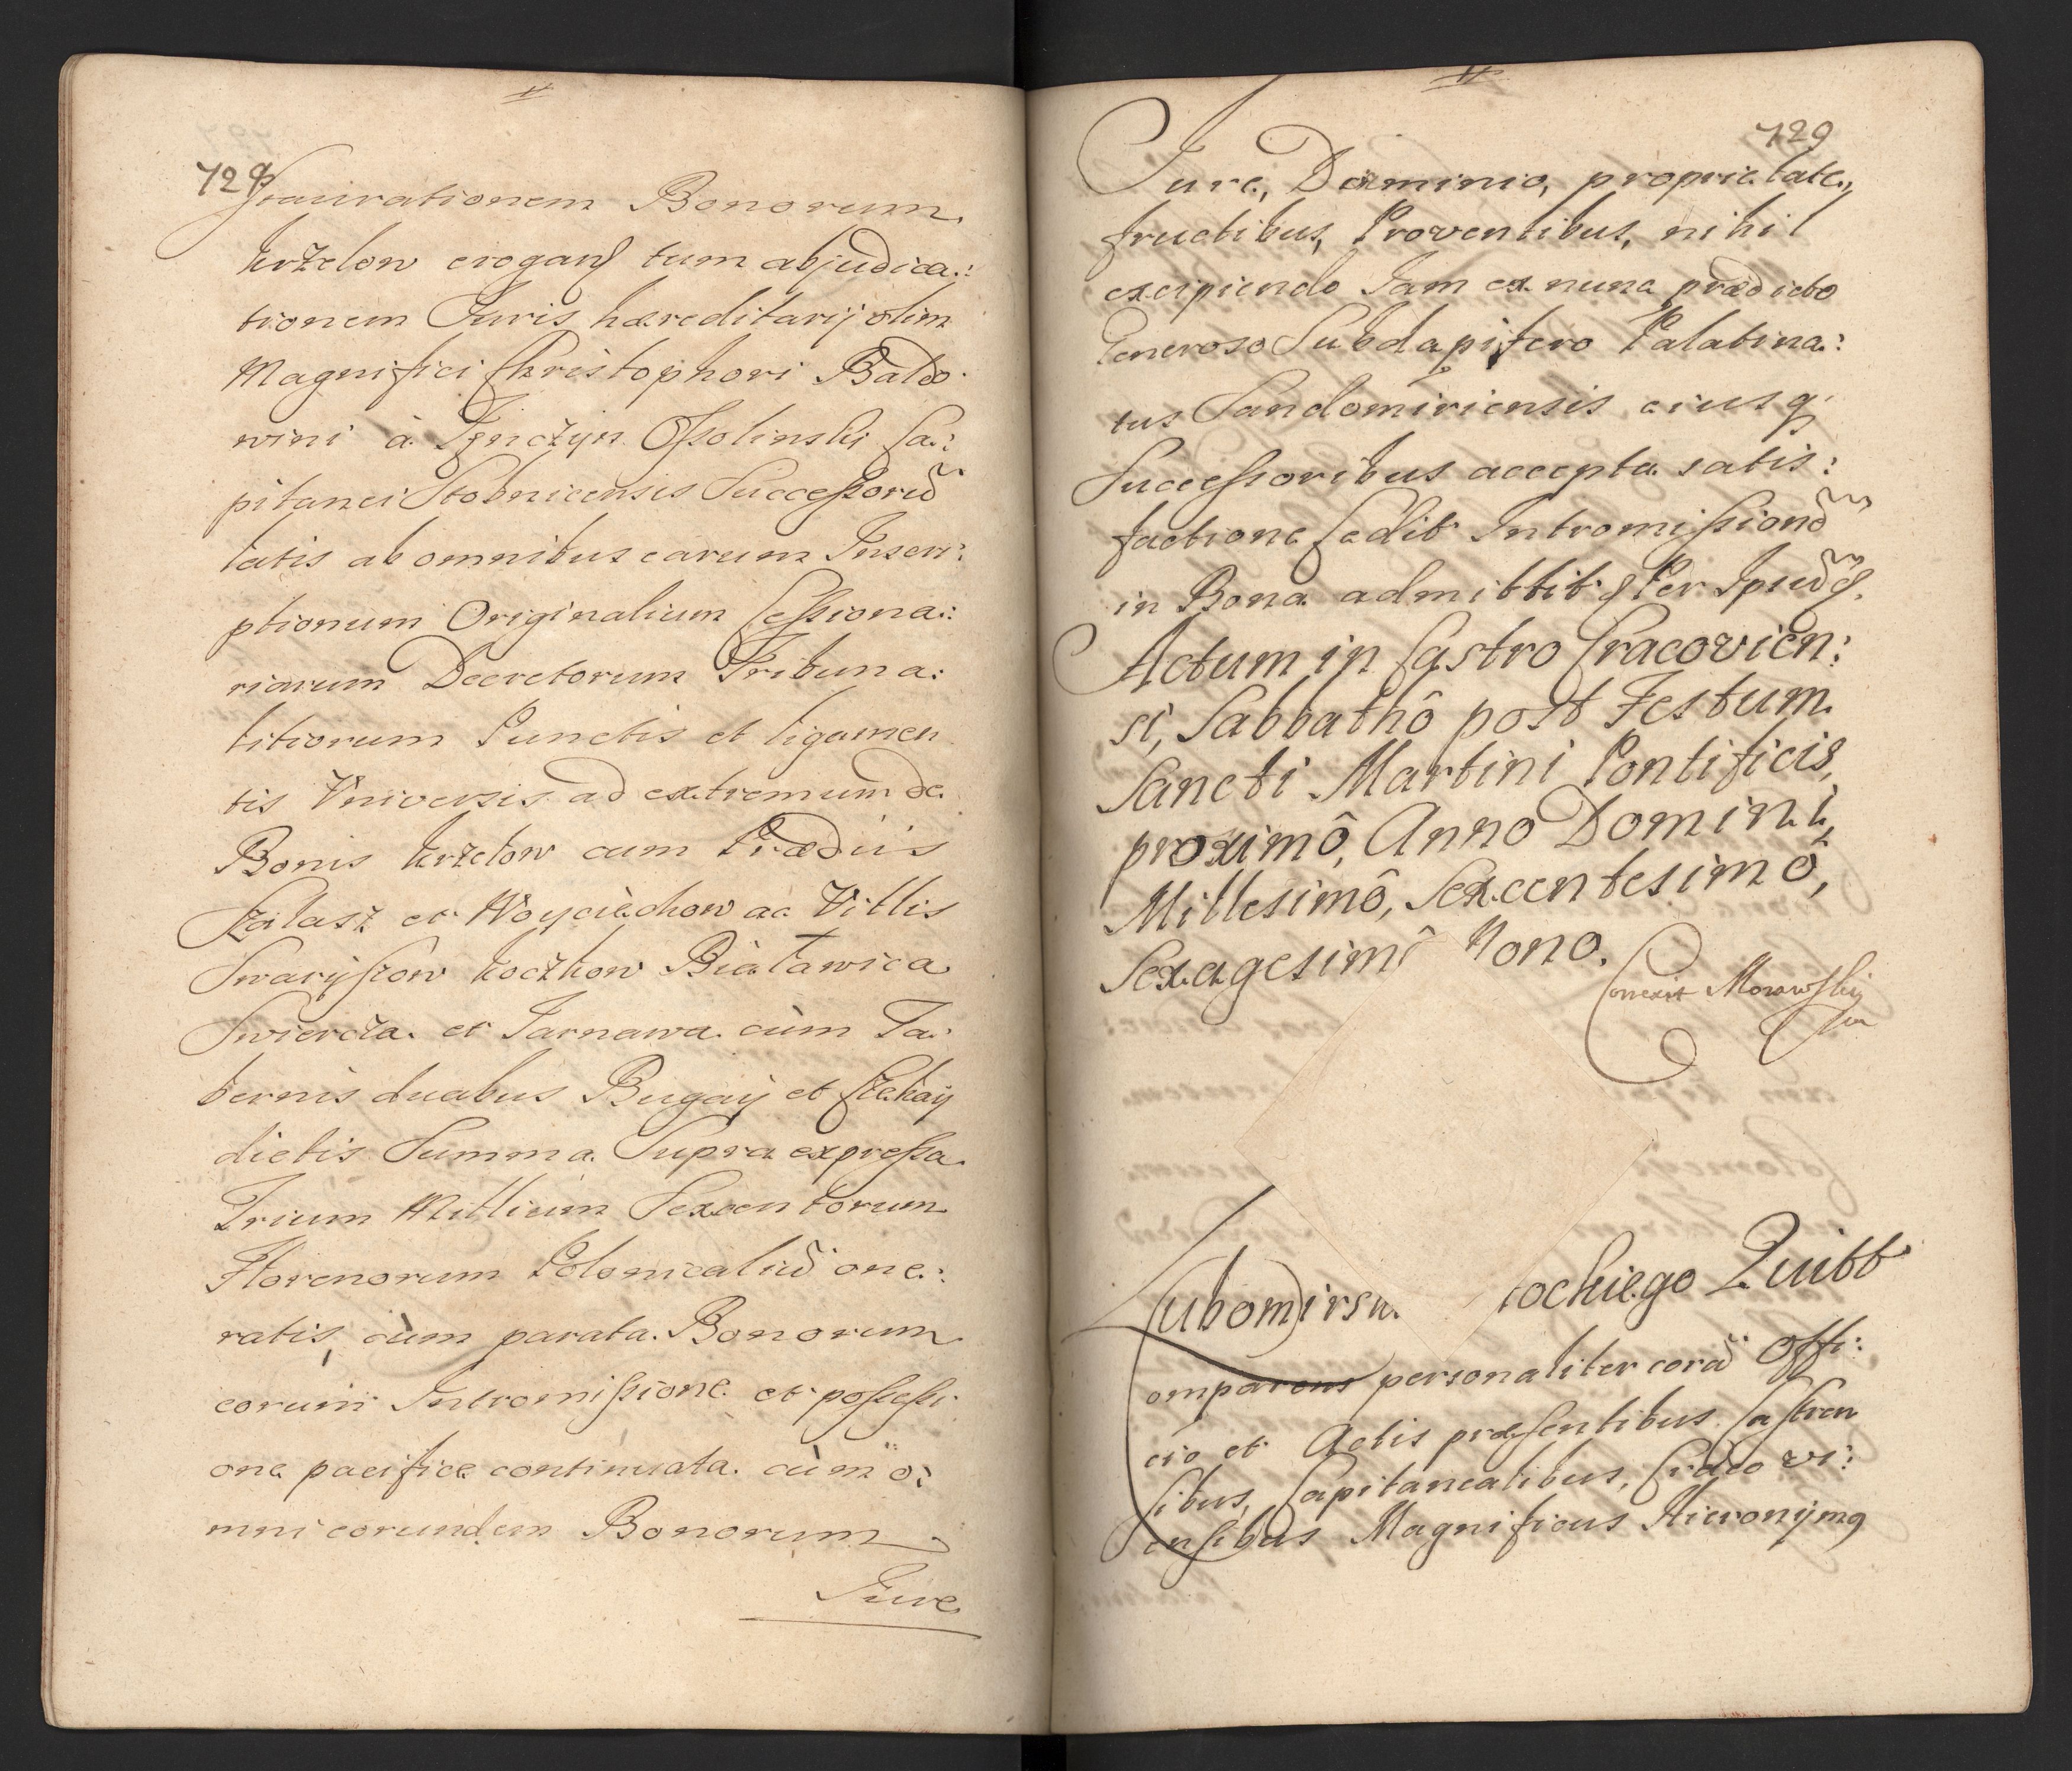 728
Bonorum
Krzelow erogans tum abjudica:
tionem Juris hæreditarij olim
Magnifici Christophori Baldo
wini à Tęnczyn Ossolinski Ca:
pitanei Stobnicensis Successorũ
latis ab omnibus earum Inscri:
ptionum Originalium Cessiona:
riarum Decretorum Tribuna:
litiorum Punctis et ligamen
tis Vniversis ad extremum de
Bonis Krzelow cum Prædiis
Szalasz et Woyciechow ac Villis
Swaryszow Koczkow Białawica
Swiercza et Tarnawa cùm Ta:
bernis duabus Bugaÿ et Czekaÿ
dictis Summa Supra expressa
Trium Millium Sexcentorum
Florenorum Polonicaliũ one:
ratis, cùm parata Bonorum
eorum Intromissione et possessi
one pacifice continuata cùm o:
mni eorundem Bonorum
Jure
729
Jure, Dominio, proprietate,
fructibus, Proventibus, nihil
excipiendo Jam ex nunc prædicto
Generoso Subdapifero Palatina:
tus Sandomiriensis eiusq
Successoribus accepta satis:
factione Cedit Intromissionẽ
in Bona admittit Per
Actum in Castro Cracovien:
si, Sabbathô post Festum
Sancti Martini Pontificis,
proximô, Anno Domini,
Millesimô, Sexcentesimô,
Sexagesimô Nono.
Correxit Morawskij
mp
Lubomirs ockiego Quitt
Comparens personaliter corã Offi:
cio et Actis præsentibus Castren
sibus, Capitanealibus, Cracovi:
ensibus Magnificus Hieronÿmq